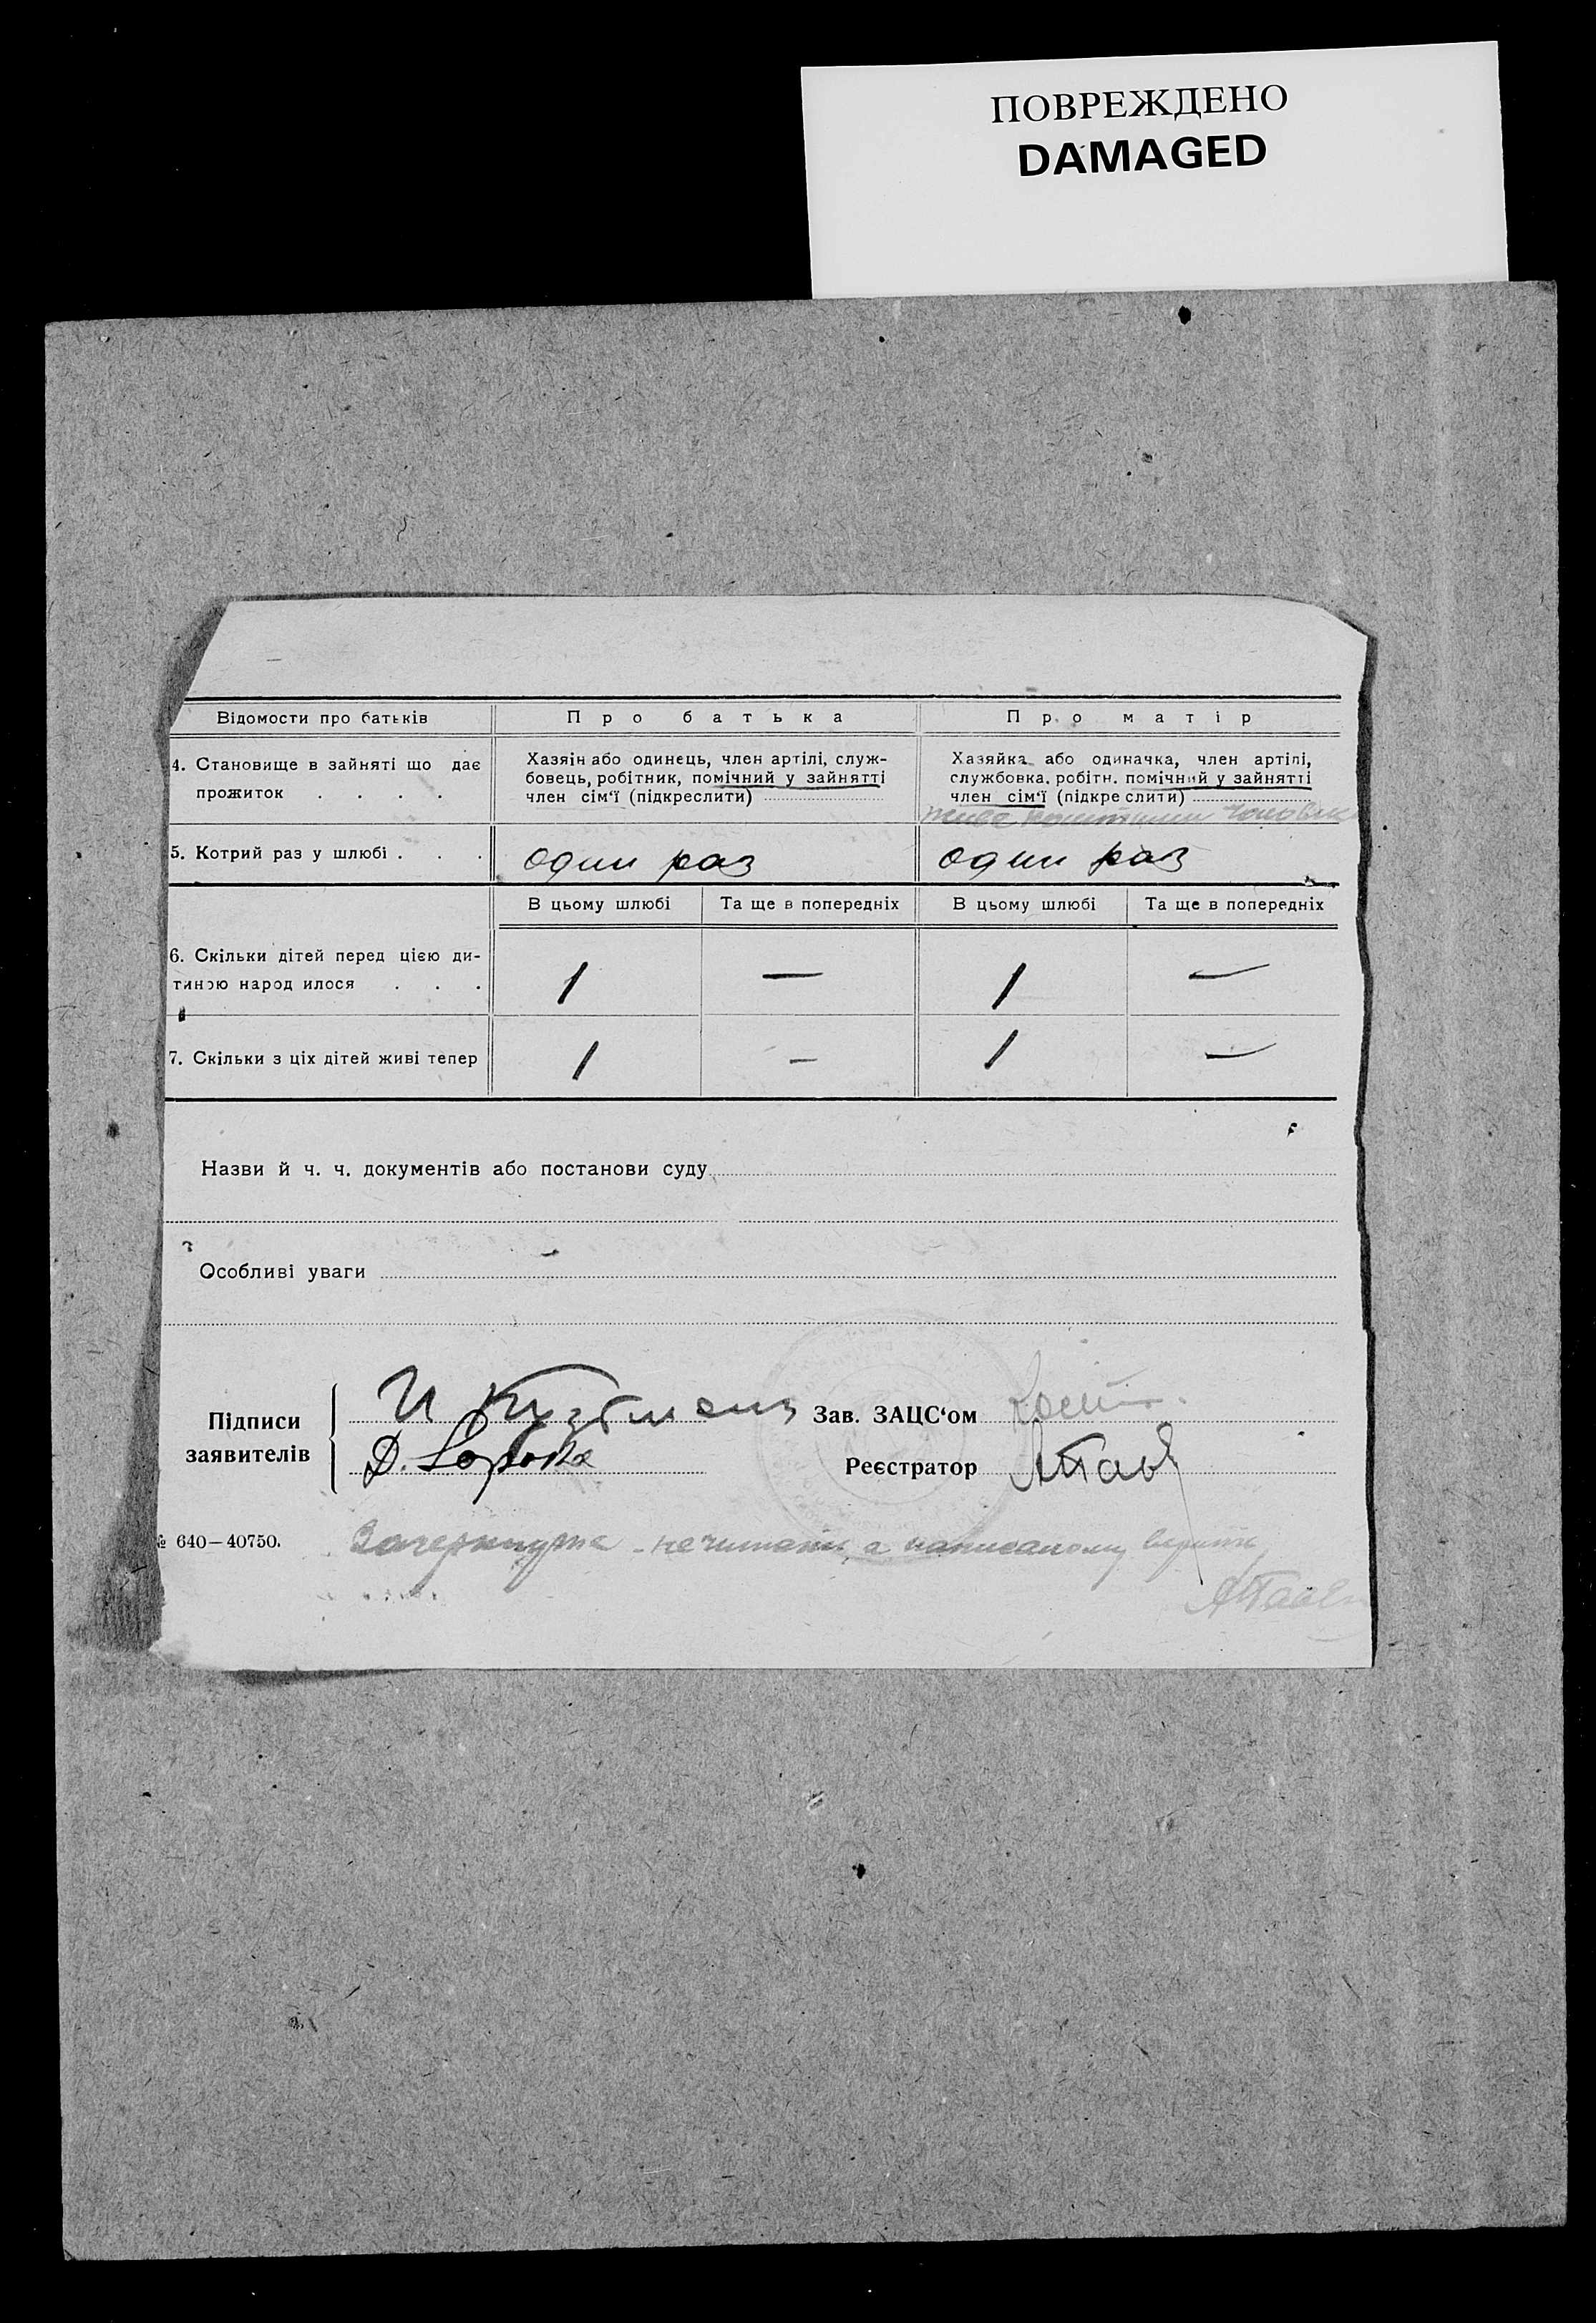 ПОВРЕЖДЕНО
DAMAGED
Відомости про батьків
Про батька
Про матір
4. Становище в зайняті що дає
прожиток . . . .
Хазяін або одинець, член артілі, служ-
бовець, робітник, помічний у зайнятті
член сім'ї (підкреслити)
Хазяйка або одиначка, член артілі,
службовка, робітн. помічний у зайнятті
член сім'ї (підкреслити)
живе коштами чоловіка
5. Котрий раз у шлюбі . . .
один раз
один раз
В цьому шлюбі
Та ще в попередніх
В цьому шлюбі
Та ще в попередніх
6. Скільки дітей перед цією ди-
тиною народилося . . .
1
—
1
—
7. Скільки з ціх дітей живі тепер
1
—
1
—
Назви й ч. ч. документів або постанови суду
Особливі уваги
Підписи
заявителів
И Кузьменко
Зав. ЗАЦС'ом
Реєстратор
№ 640—40750.
Зачеркнуте - не читать, а написаному верить